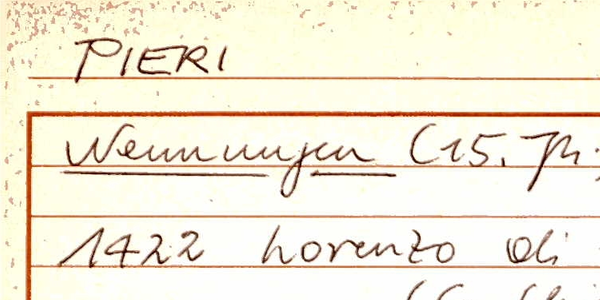 PIERI
Nennungen (15. Jh.
1422 Lorenzo di